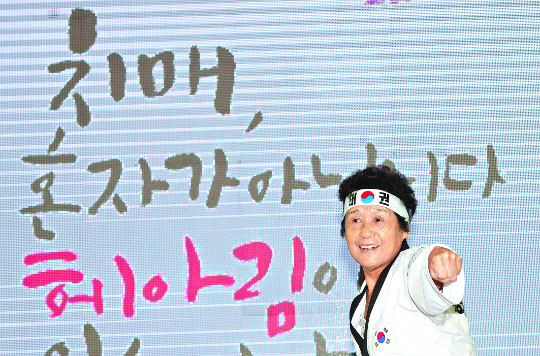 치매,
혼자가 아닙니다
헤아림이
태 권